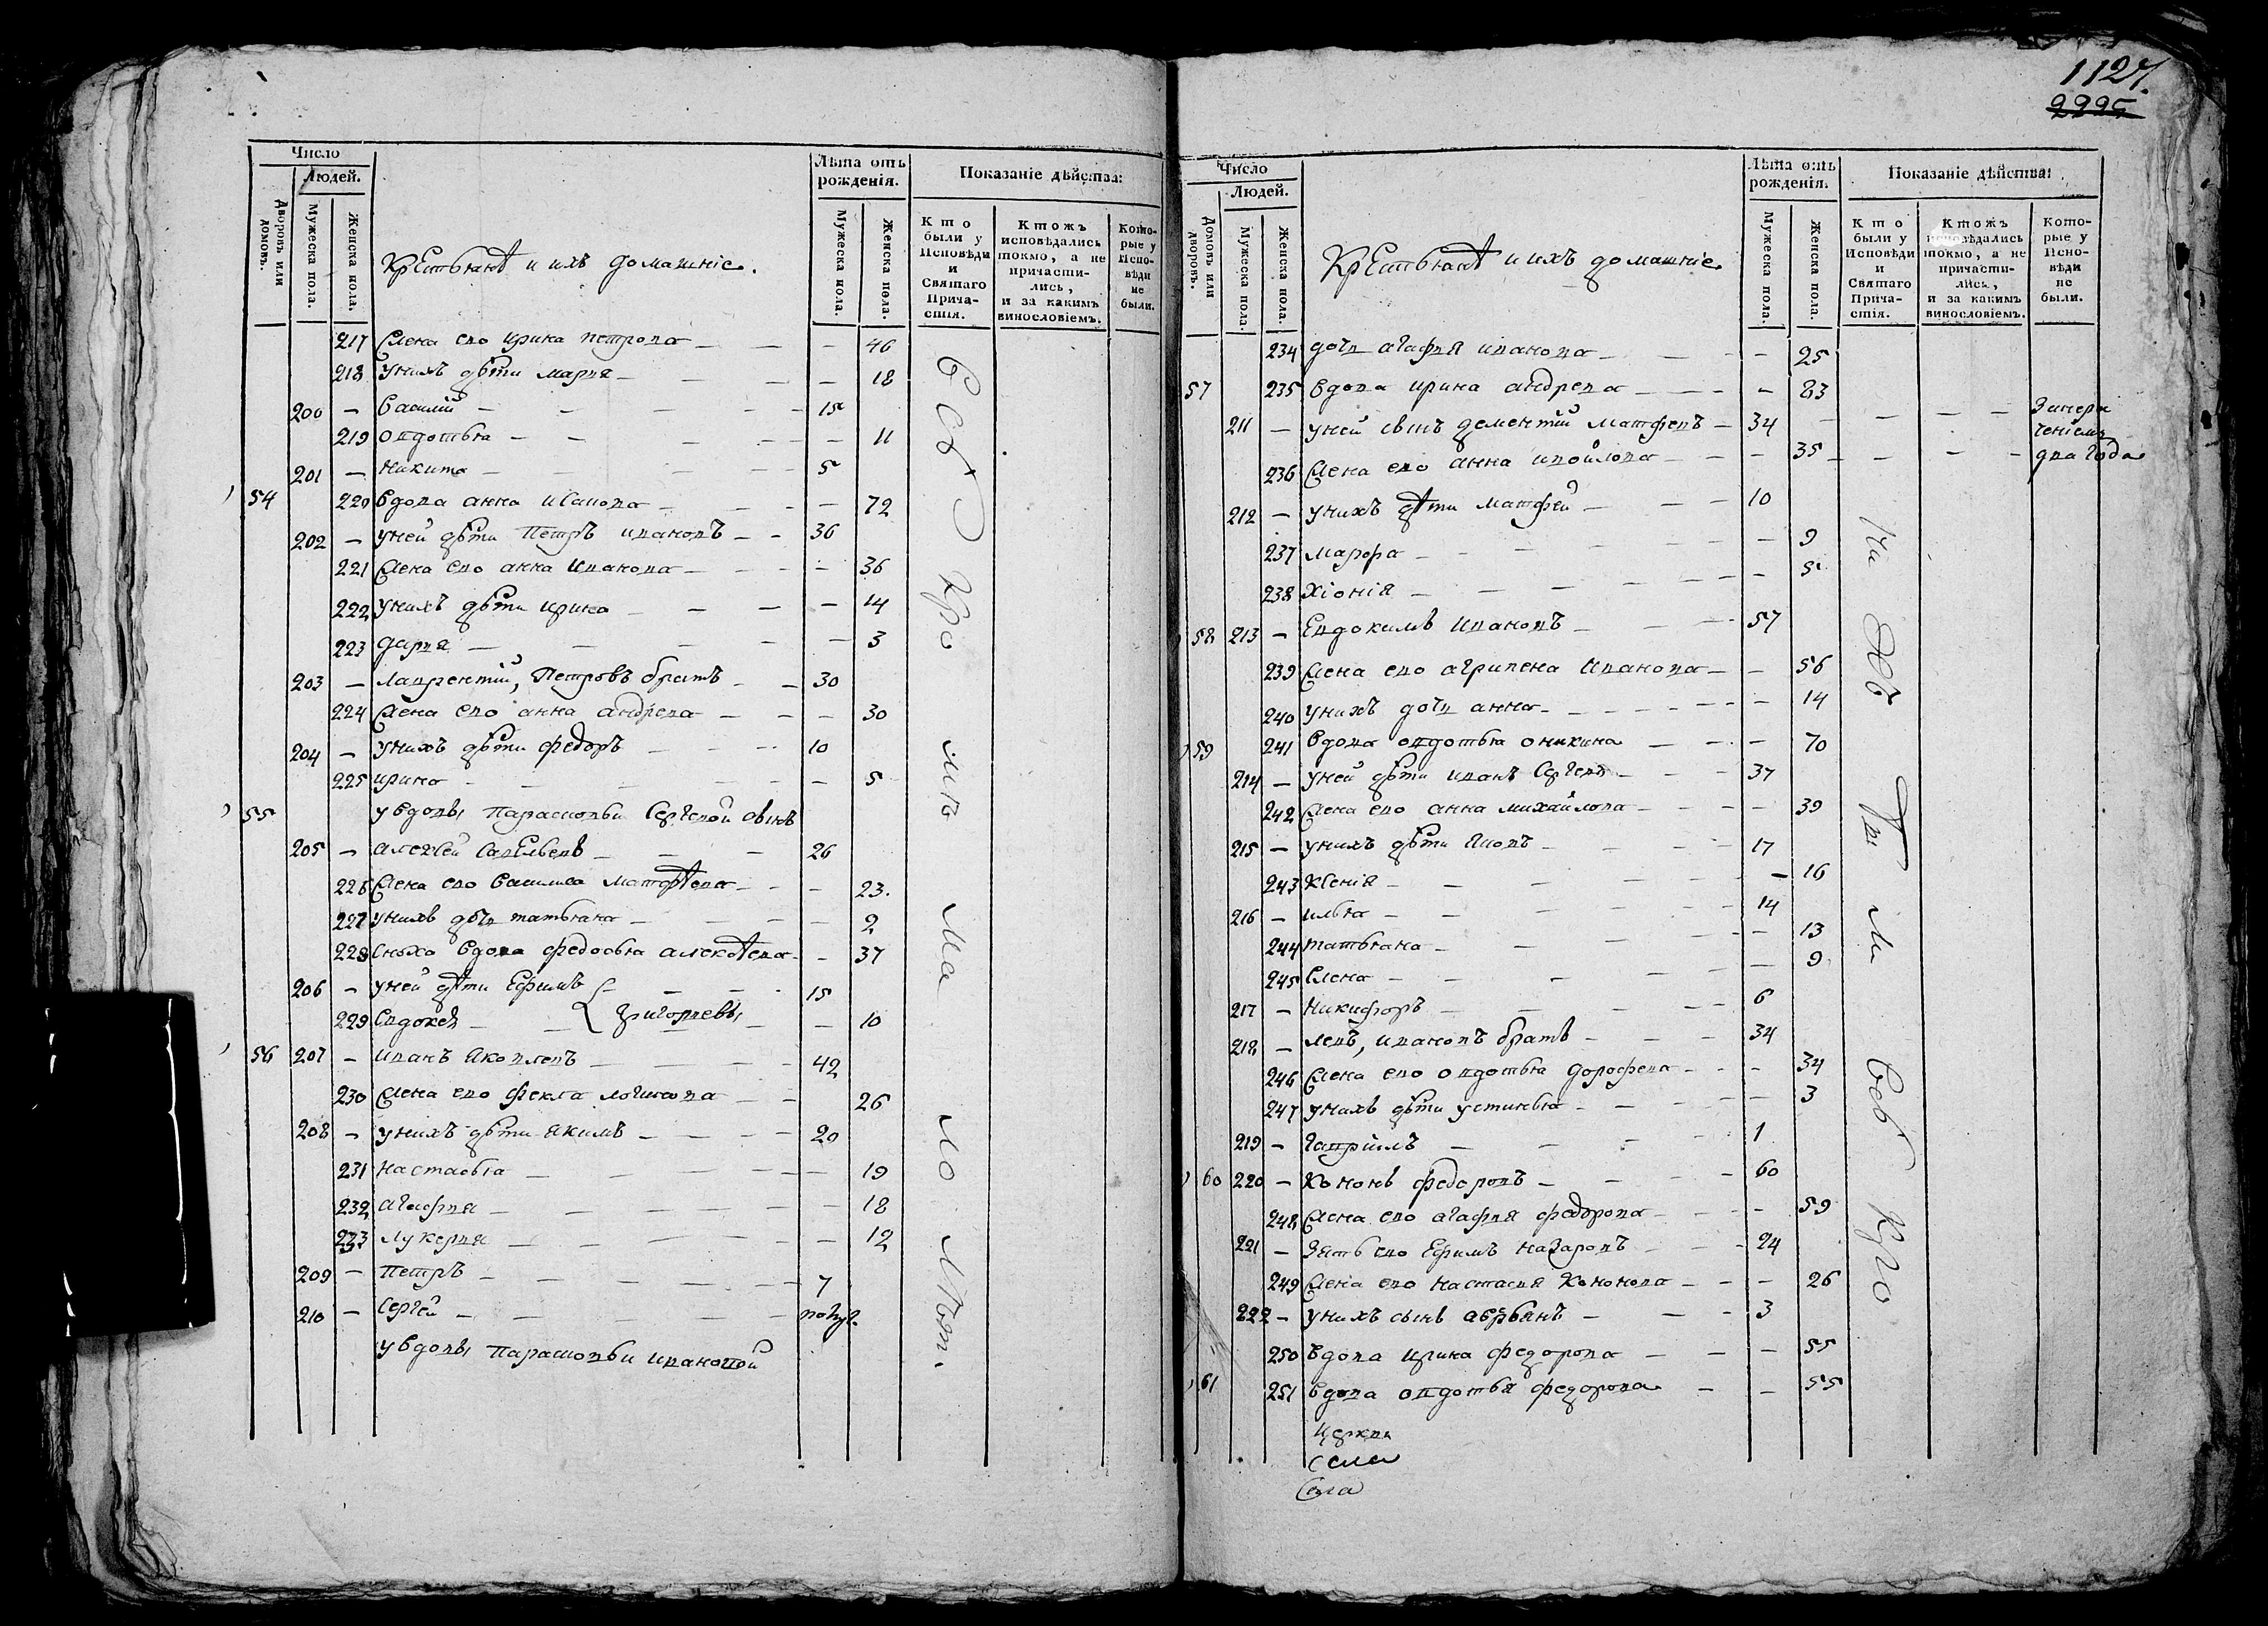 Число
Людей.
Дворовъ или домовъ.
Мужеска пола.
Женска пола.
Крестьянѣ и ихъ домашніе.
Лѣта отъ рожденія.
Мужеска пола.
Женска пола.
Показаніе дѣйства:
Кто были у Исповѣди и Святаго Причастія.
Ктожъ исповѣдались токмо, а не причастились, и за какимъ винословіемъ.
Которые у Исповѣди не были.
217 Жена ево ирина петрова — 46
218 унихъ дѣти марія — 18
200 — василій — 15
219 овдотья — 11
201 — никита — 5
54 220 вдова анна исанова — 72
202 — уней дѣти Петръ ивановъ — 36
221 Жена ево анна иванова — 36
222 унихъ дѣти ирина — 14
223 дарья — 3
203 — лаврентій, Петровъ братъ — 30
224 Жена ево анна андрева — 30
204 — унихъ дѣти федоръ — 10
225 ирина — 5
55 увдовы парасковьи Сергевой сынъ
205 — алексѣй савельевъ — 26
226 Жена ево василиса матфѣева — 23.
227 унихъ дочь татьяна — 2
228 сноха вдова федосья алексѣева — 37
206 — уней дѣти Ефимъ — 15
229 Евдокея — григорьевы — 10
56 207 — иванъ яковлевъ — 42
230 Жена ево фекла логинова — 26
208 — унихъ дѣти якимъ — 20
231 настасья — 19
232 агафья — 18
233 лукерья — 12
209 — петръ — 7
210 — сергей — полуг.
увдовы парасковьи ивановой
1127.
2225
Число
Людей.
Домовъ или дворовъ.
Мужеска пола.
Женска пола.
Крестьянѣ и ихъ домашніе
Лѣта отъ рожденія.
Мужеска пола.
Женска пола.
Показаніе дѣйства:
Кто были у Исповѣди и Святаго Причастія.
Ктожъ исповѣдались токмо, а не причастились, и за какимъ винословіемъ.
Которые у Исповѣди не были.
234 дочь агафья иванова — 25
57 235 вдова ирина андрева — 83
211 — уней сынъ дементій матфевъ — 34
236 Жена ево анна — 35
два года
212 — унихъ дѣти матфей — 10
237 марфа — 9
238 хіонія — 5
58 213 — Евдокимъ ивановъ — 57
239 Жена ево агрипена иванова — 56
240 унихъ дочь анна — 14
59 241 вдова овдотья оникина — 70
214 — уней дѣти иванъ Сергевъ — 37
242 Жена ево анна михайлова — 39
215 — унихъ дѣти — 17
243 ксенія — 16
216 — илья — 14
244 татьяна — 13
245 Елена — 9
217 — никифоръ — 6
218 — левъ, ивановъ братъ — 34
246 Жена ево овдотья дорофева — 34
247 унихъ дѣти устинья — 3
219 — гаврилъ — 1
60 220 — кононъ федоровъ — 60
248 Жена ево агафья федорова — 59
221 — зять ево Ефимъ назаровъ — 24
249 Жена ево настасья кононова — 26
222 — унихъ сынъ аверьянъ — 3
250 вдова ирина федорова — 55
61 251 вдова овдотья федорова — 55
церкви
села